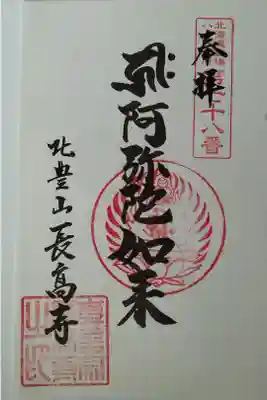 十八番
奉拝
阿弥陀如来
北豊山長高寺